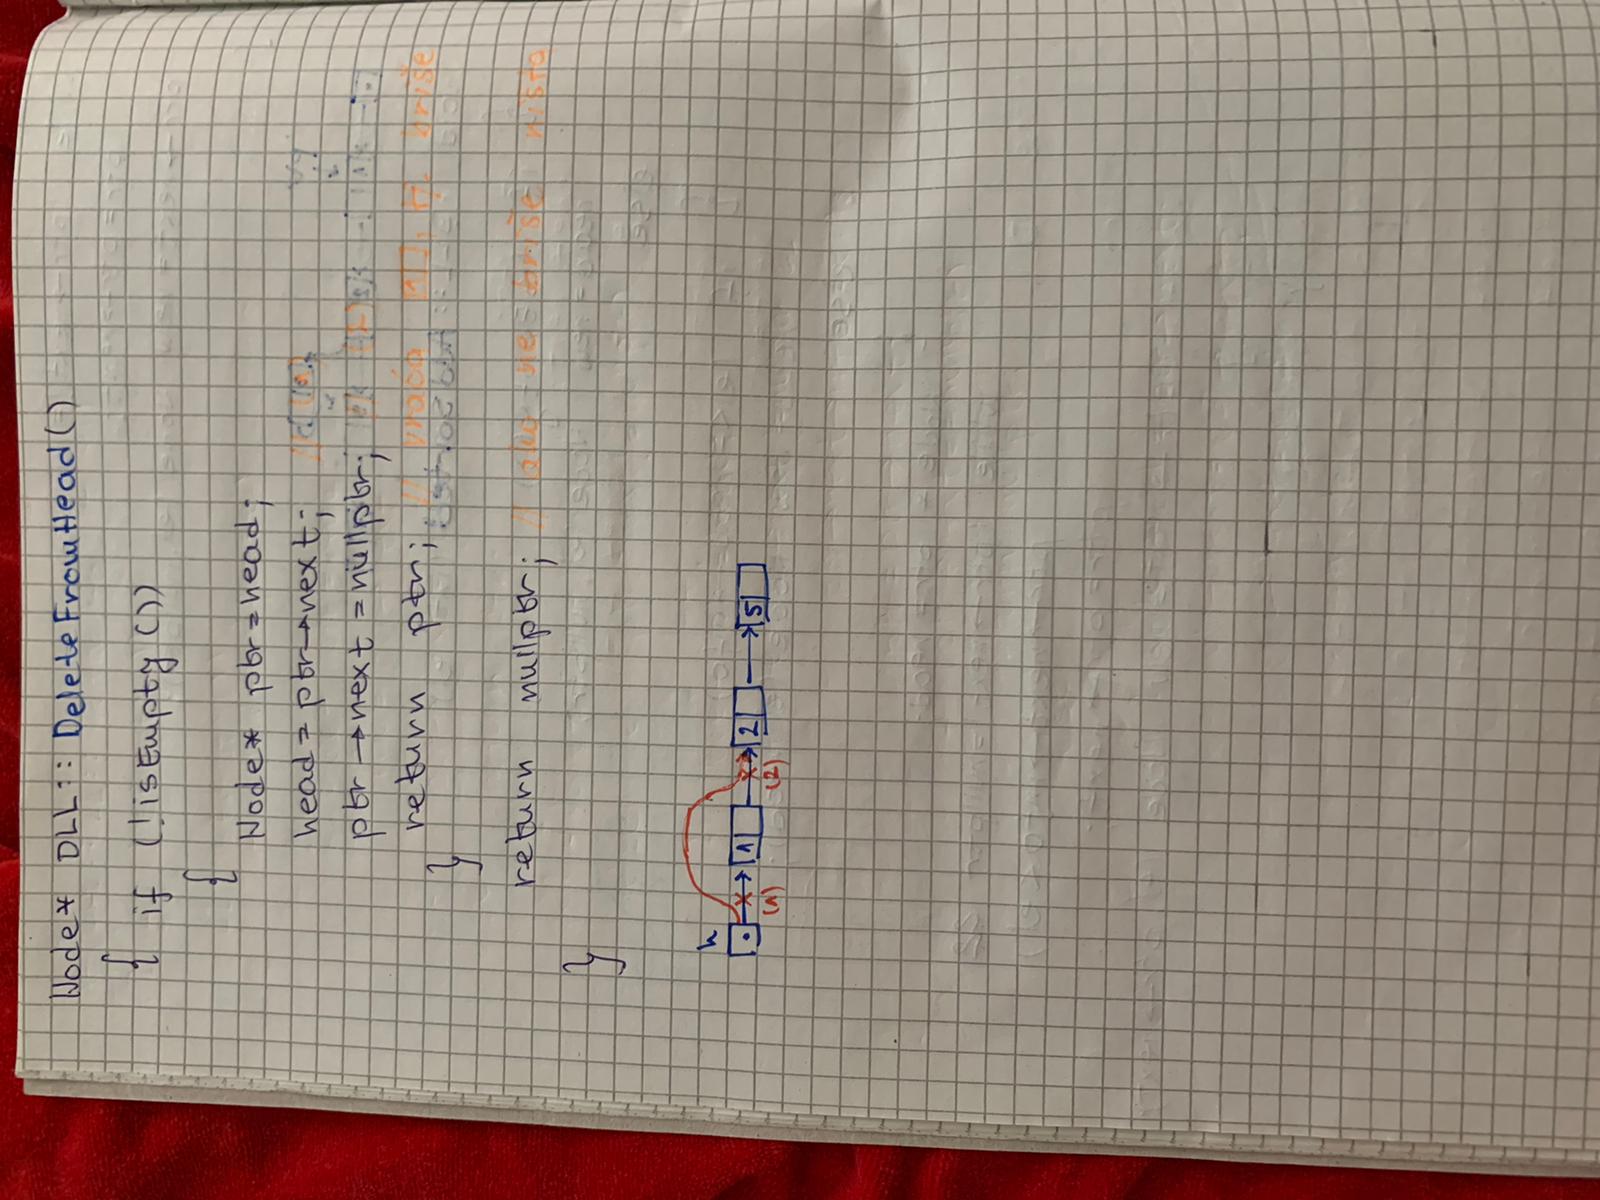 Node* DLL:: DeleteFromHead()
{ if (!isEmpty())
{
Node* ptr=head;
head=ptr→next; // (1)
ptr→next=nullptr; // (2)
return ptr; // vraća [1], tj. briše
}
return nullptr; // ako ne briše ništa
}
h
1 2 5
(1) (2)